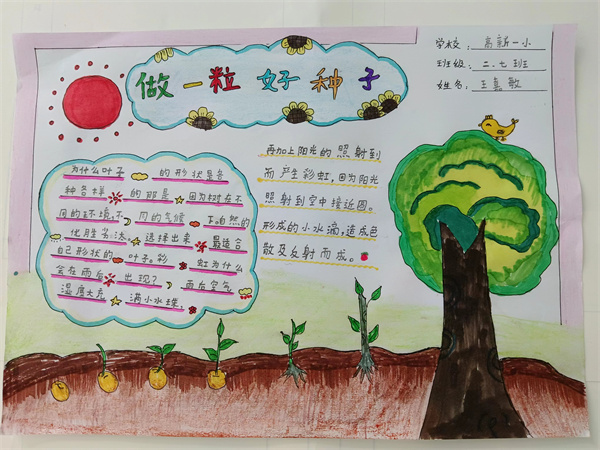 做一粒好种子
学校：高新一小
班级：二.七班
姓名：王嘉敏
为什么叶子的形状是各
种各样的那是因为树在不
同的环境,不同的气候下.自然的
优胜劣汰.选择出来最适合
自己形状的叶子.彩虹为什么
会在雨后出现？雨后空气
湿度大充满小水珠.
再加上阳光的照射到
而产生彩虹,因为阳光
照射到空中接近圆。
形成的小水滴,造成色
散及反射而成。